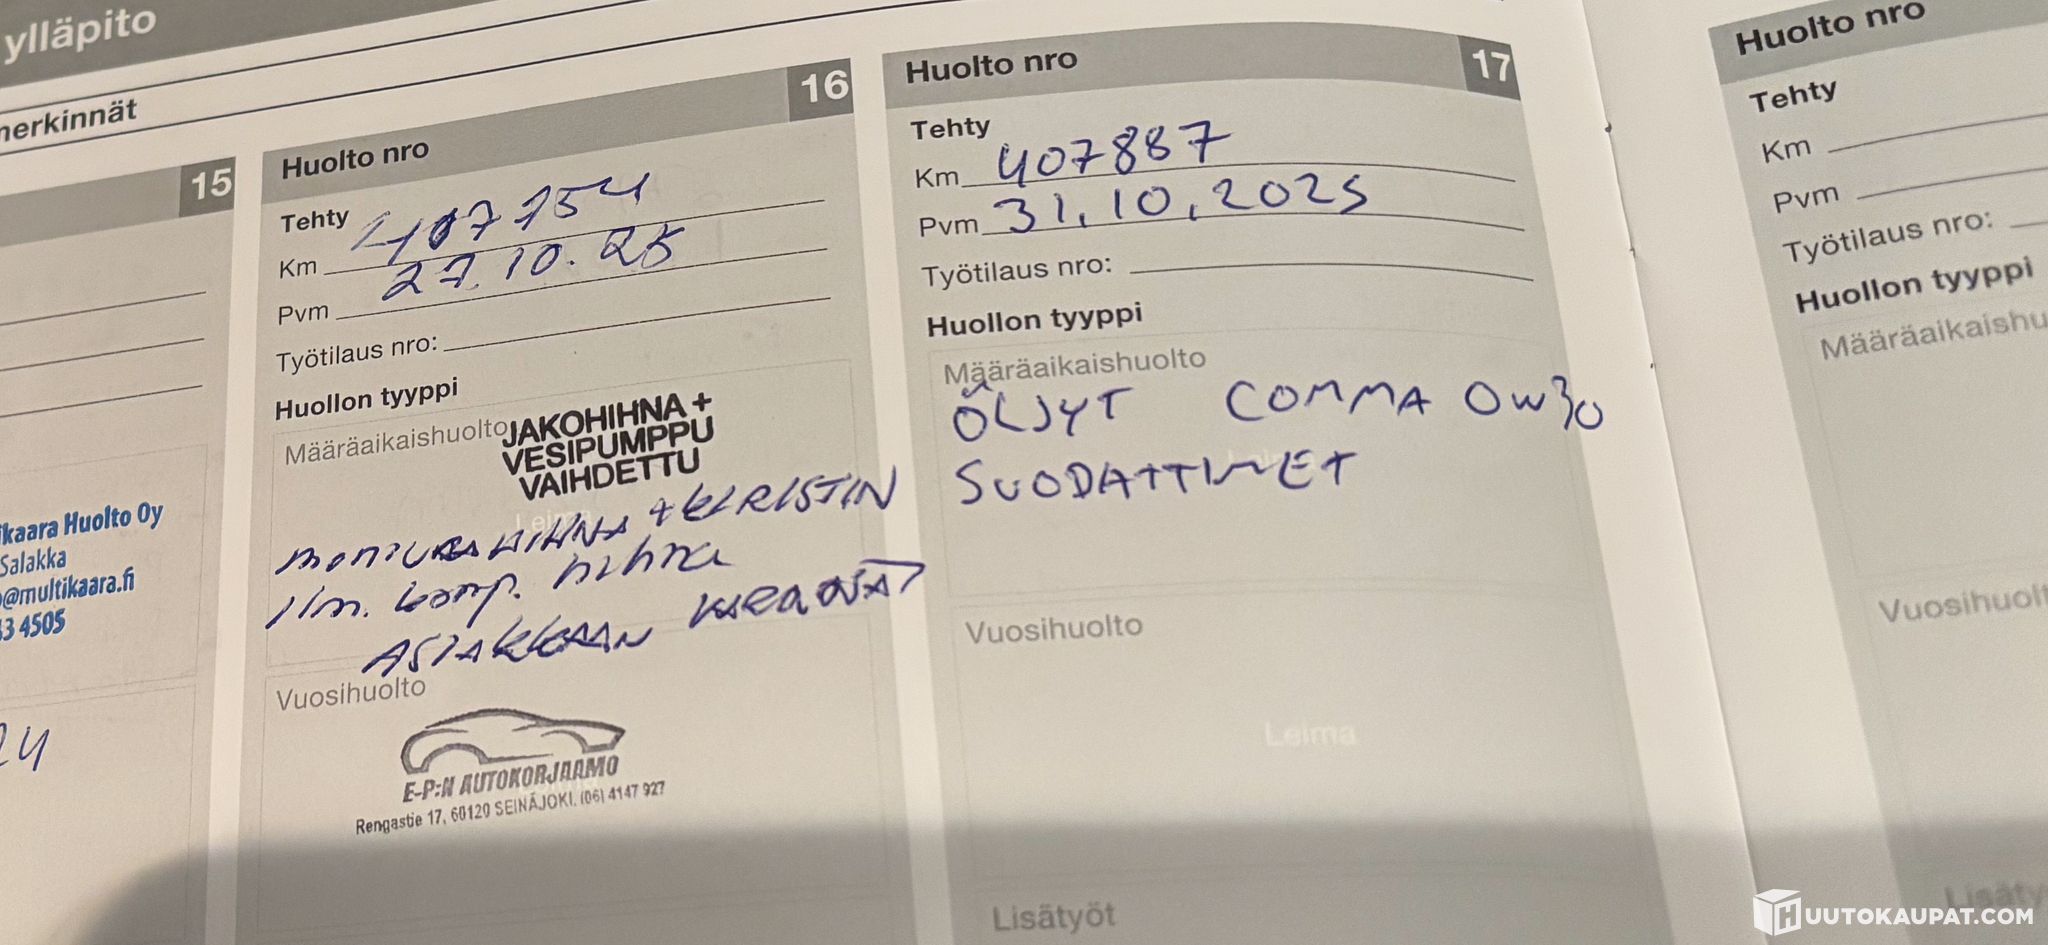 ylläpito
merkinnät
15
ikaara Huolto Oy
Salakka
@multikaara.fi
3 4505
24
Huolto nro 16
Tehty
Km 407754
Pvm 27.10.25
Työtilaus nro:
Huollon tyyppi
Määräaikaishuolto
JAKOHIHNA +
VESIPUMPPU
VAIHDETTU
Leima
MONIURAHIHNA + KIRISTIN
ilm. komp. hihna
ASIAKKAAN VARAOSAT
Vuosihuolto
E-P:N AUTOKORJAAMO
Rengastie 17, 60120 SEINÄJOKI, (06) 4147 927
Huolto nro 17
Tehty
Km 407887
Pvm 31.10.2025
Työtilaus nro:
Huollon tyyppi
Määräaikaishuolto
ÖLJYT COMMA 0W30
SUODATTIMET
Vuosihuolto
Leima
Lisätyöt
Huolto nro
Tehty
Km
Pvm
Työtilaus nro:
Huollon tyyppi
Määräaikaishu
Vuosihuolt
Lisäty
HUUTOKAUPAT.COM